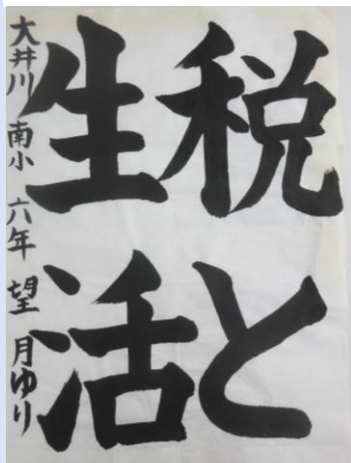 税と
生活
大井川南小 六年 望月ゆり